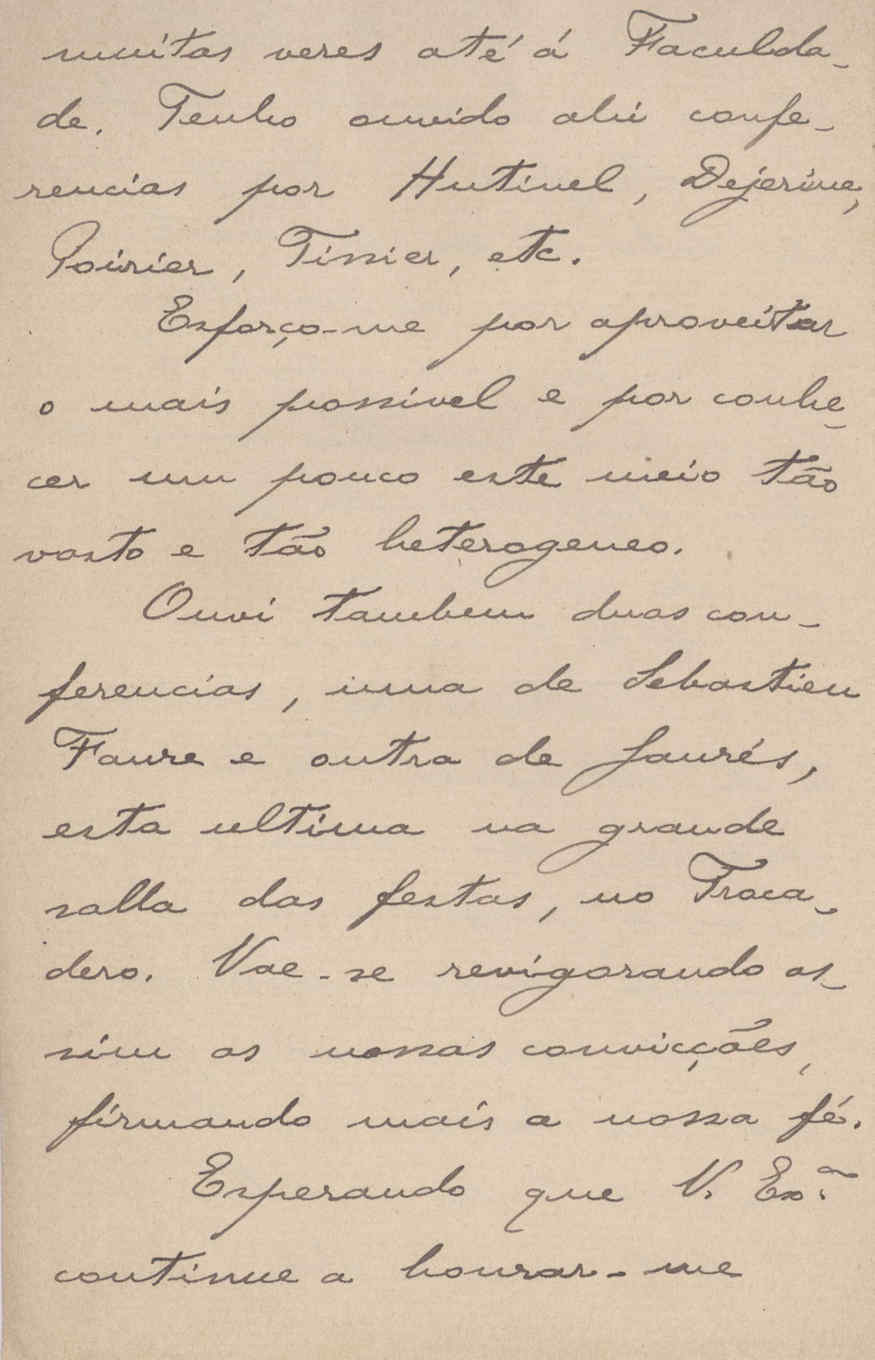 muitas veres até á Faculda-
de. Tenho ouvido ahi confe-
rencias por Hutinel, Dejerine,
Poirier, Tissier, etc.
Esforço-me por aproveitar
o mais possivel e por conhe-
cer um pouco este meio tão
vasto e tão heterogeneo.
Ouvi tambem duas con-
ferencias, uma de Sebastien
Faure e outra de Jaurés,
esta ultima na grande
salla das festas, no Troca-
dero. Vae-se revigorando as-
sim as nossas convicções,
firmando mais a nossa fé.
Esperando que V. Exª.
continue a honrar-me